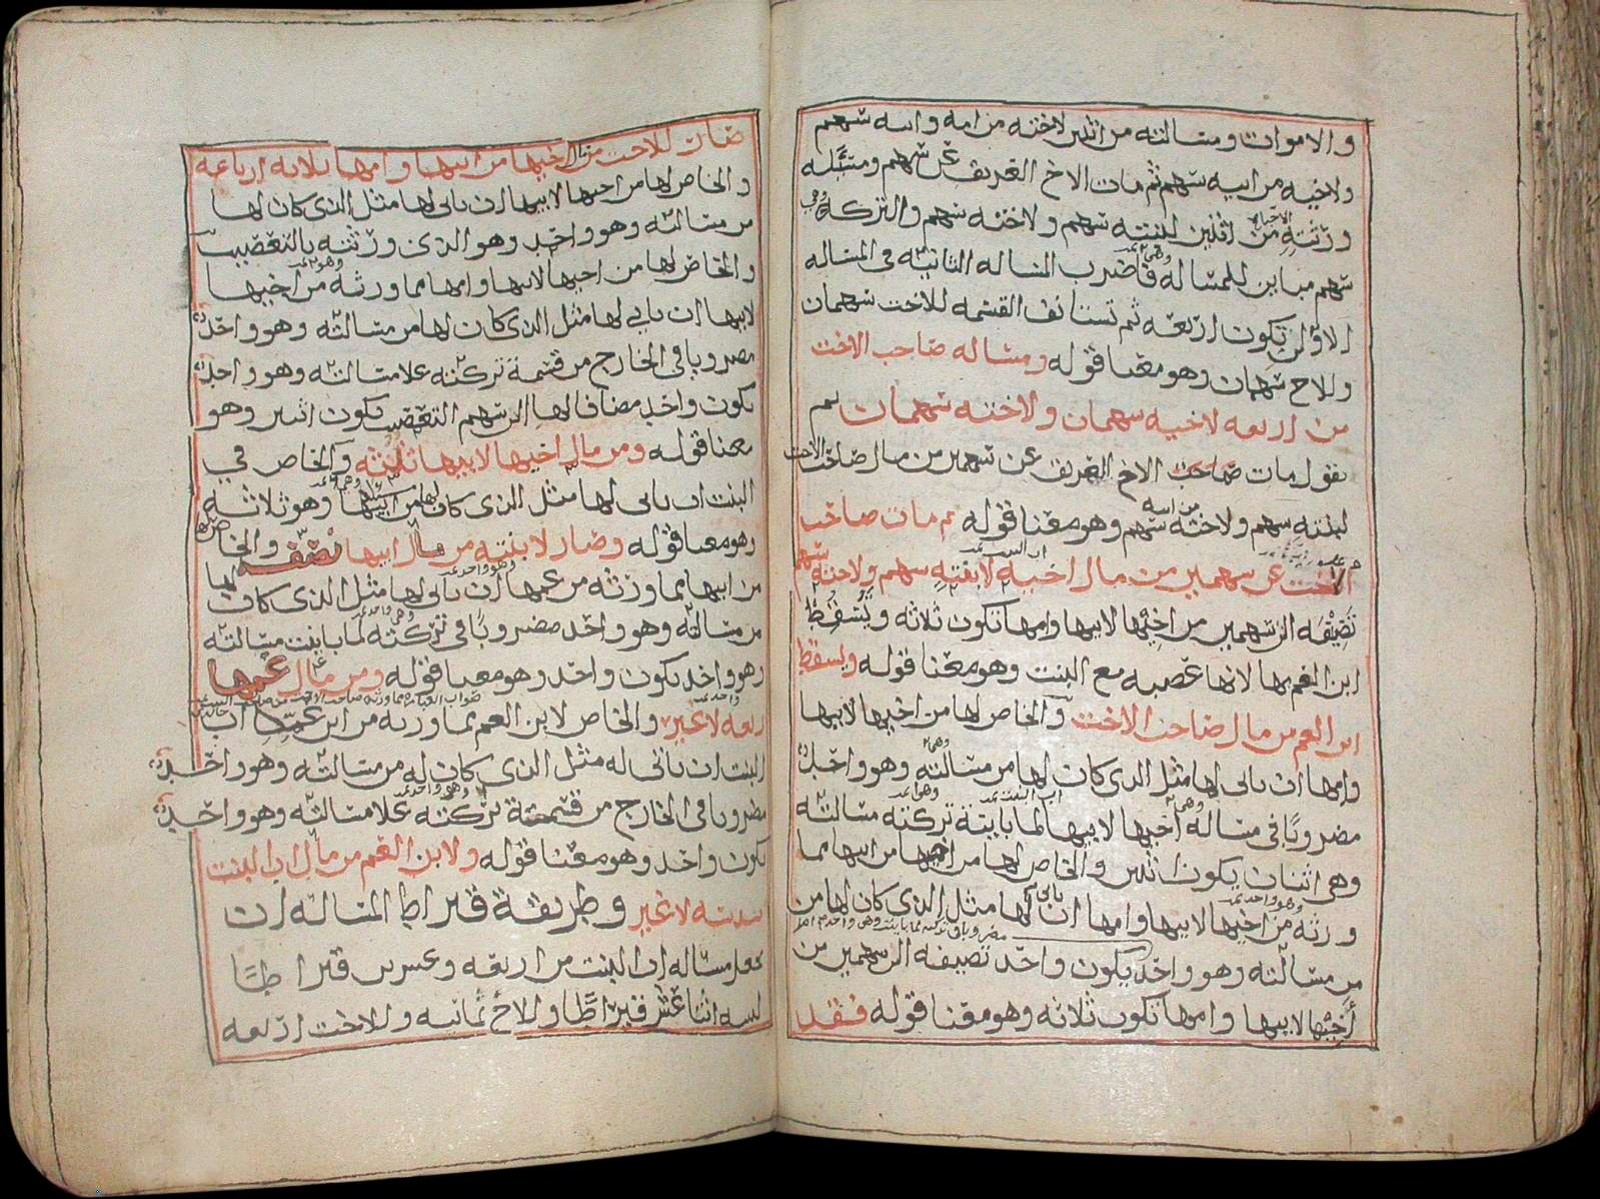 والاموات ومسالته من اثنين لاخته من امه وابيه سهم
ولاخيه من ابيه سهم ثم مات الاخ الغريق عن سهم ومسله
ورثته من اثنين لبنته سهم ولاخته سهم والتركه وهي
سهم مباين للمساله فاضرب المساله الثانيه في المساله
الاولى تكون اربعه ثم تستانف القسمه للاخت سهمان
وللاخ سهمان وهو معنا قوله ومساله صاحب الاخت
من اربعه لاخيه سهمان ولاخته سهمان ثم
نقول مات صاحب الاخ الغريق عن سهمين من مال صاحب الاخت
لبنته سهم ولاخته من ابيه سهم وهو معنا قوله ثم مات صاحب
الاخت عن سهمين من مال اخيه لابنته سهم ولاخته سهم
تضيفه الى سهمين من اخيها لابيها وامها تكون ثلاثه ويسقط
ابن العم بها لانها عصبه مع البنت وهو معنا قوله ويسقط
ابن العم من مال صاحب الاخت والخاص لها من اخيها لابيها
وامها ان ياتى لها مثل الذى كان لها من مسالته وهو واحد
مضروبا في مساله اخيها لابيها لما باينة تركته مسالته
وهي اثنان يكون اثنين والخاص لها من اخيها من ابيها مما
ورثه من اخيها لابيها وامها ان ياتى لها مثل الذى كان لها من
من مسالته وهو واحد يكون واحد تضيفه الى سهمين من
اخيها لابيها وامها تكون ثلاثه وهو معنا قوله فقد
صار للاخت من مال اخيها من ابيها وامها ثلاثه ارباعه
والخاص لها من اخيها لابيها ان ياتى لها مثل الذى كان لها
من مسالته وهو واحد وهو الذى ورثته بالتعصيب
والخاص لها من اخيها لابيها وامها مما ورثه من اخيها
لابيها ان ياتي لها مثل الذى كان لها من مسالته وهو واحد
مضروبا في الخارج من قسمة تركته علا مسالته وهو واحد
يكون واحد مضاف لها الى سهم التعصيب يكون اثنين وهو
معنا قوله ومن مال اخيها لابيها ثلثيه والخاص في
البنت ان ياتى لها مثل الذى كان لها من ابيها وهو ثلاثه
وهو معنا قوله وصار لابنته من مال ابيها نصفه والخاص لها
من ابيها مما ورثه من عمها ان ياتى لها مثل الذى كان لها
من مسالته وهو واحد مضروبا في تركته لما باينت مسالته
وهو واحد يكون واحد وهو معنا قوله ومن مال عمها
ربعه لا غير والخاص لابن العم مما ورثه من ابن عمه اب
البنت ان ياتى له مثل الذى كان له من مسالته وهو واحد
مضروبا في الخارج من قسمة تركته علا مسالته وهو واحد
يكون واحد وهو معنا قوله ولابن العم من مال اب البنت
سدسه لا غير وطريقة قيراط المساله ان
تجعل مساله اب البنت من اربعه وعشرين قيراطا
لبنته اثنا عشر قيراطا وللاخ ثمانيه وللاخت اربعه